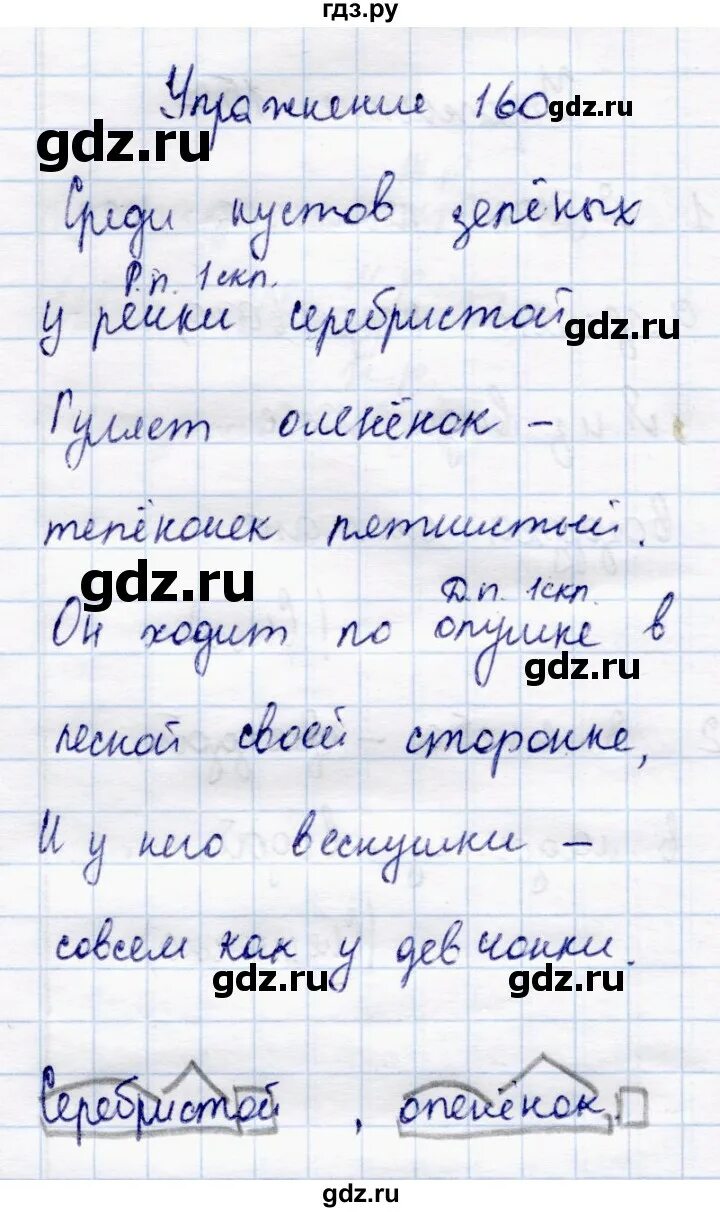 гдз.ру
Упражнение 160
gdz.ru
gdz.ru
Среди кустов зелёных
Р.п. 1скл.
у речки серебристой
gdz.ru
Гуляет оленёнок –
телёночек пятнистый.
gdz.ru
Д.п. 1скл.
Он ходит по опушке в
gdz.ru
лесной своей сторонке,
И у него веснушки –
совсем как у девчонки.
gdz.ru
gdz.ru
Серебристой , оленёнок.
gdz.ru